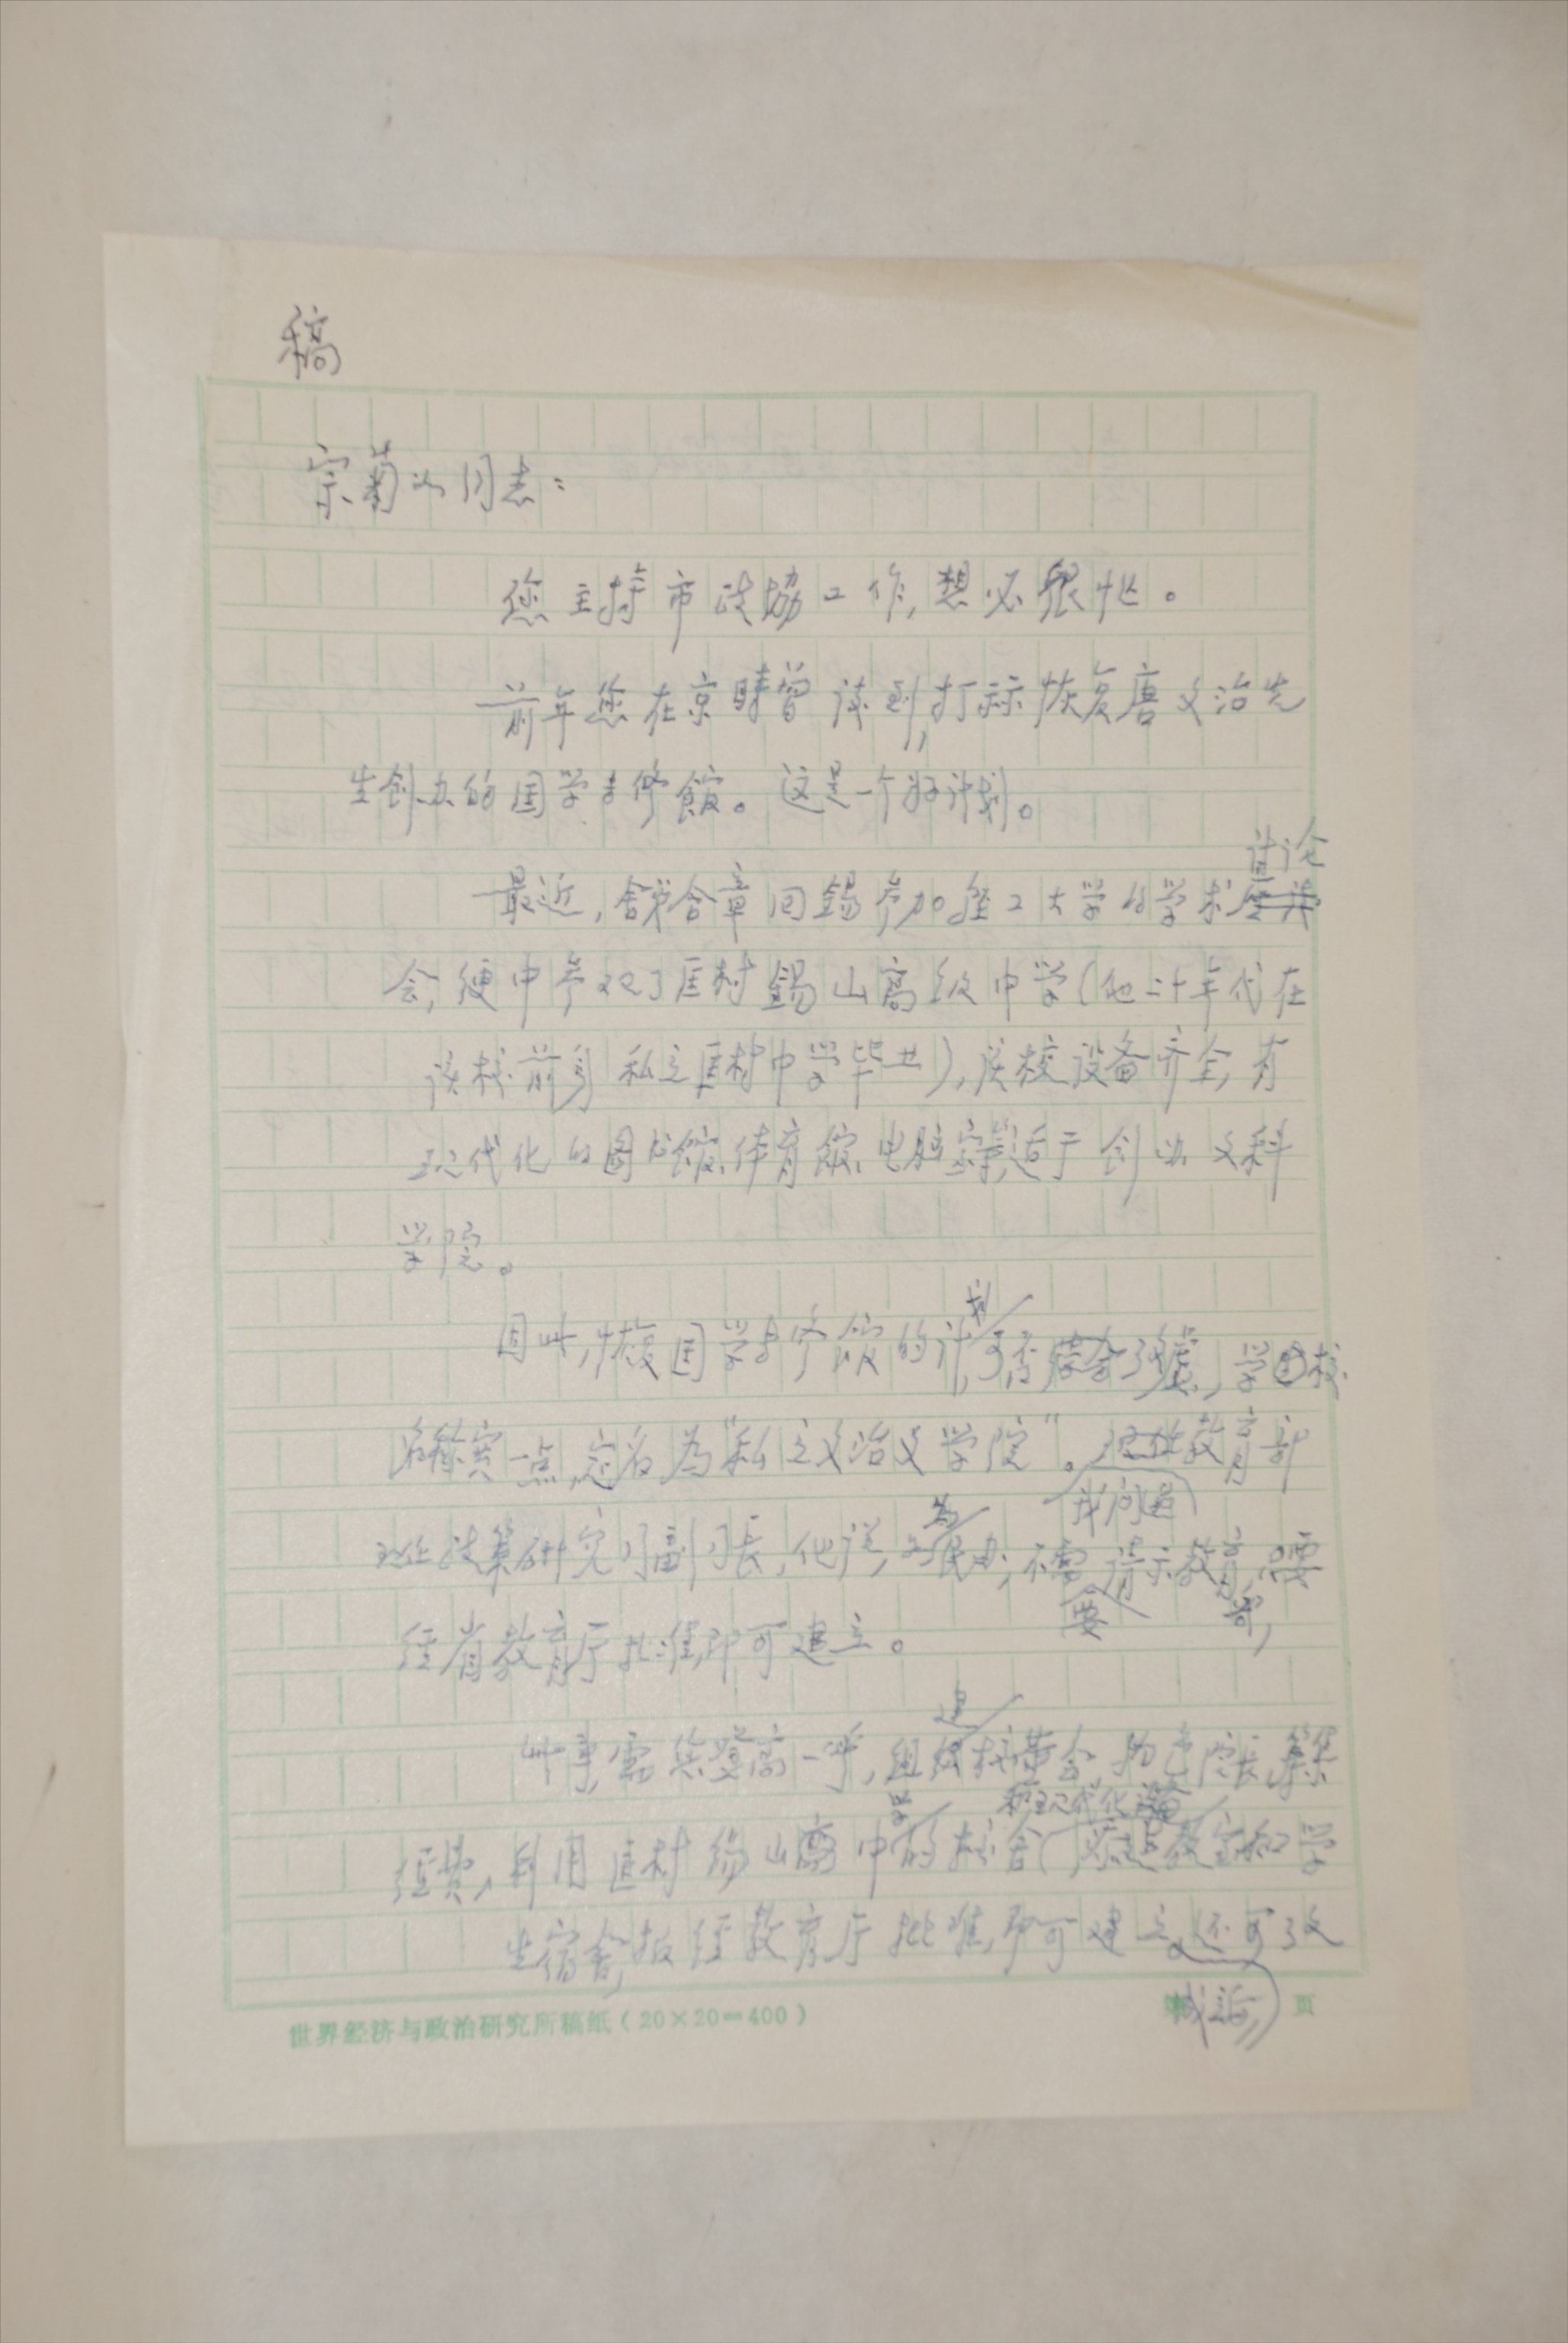 稿
宗菊如同志：
您主持市政协工作，想必很忙。
前年您在京时曾谈到，打算恢复唐文治先
生创办的国学专修馆。这是一个好计划。
讨论
最近，舍弟含章回锡参加轻工大学的学术
会，便中参观了匡村锡山高级中学（他二十年代在
该校前身私立匡村中学毕业），该校设备齐全，有
现代化的图书馆、体育馆、电脑室等，适于创办文科
学院。
划
因此，恢复国学专修馆的计，可否结合考虑，学校
名称宽一点，定名为“私立文治文学院”。现任教育部
我问过
为
政策研究司副司长，他说，民办，不需请示教育，只要
要
部，
经省教育厅批准，即可建立。
建
此事，需您登高一呼，组校董会，物色院长，筹集
和现代化设备
经费，利用匡村锡山高中的校舍（教室和学
生宿舍，报经教育厅批准，即可建立。还可改
世界经济与政治研究所稿纸（20×20＝400）
页